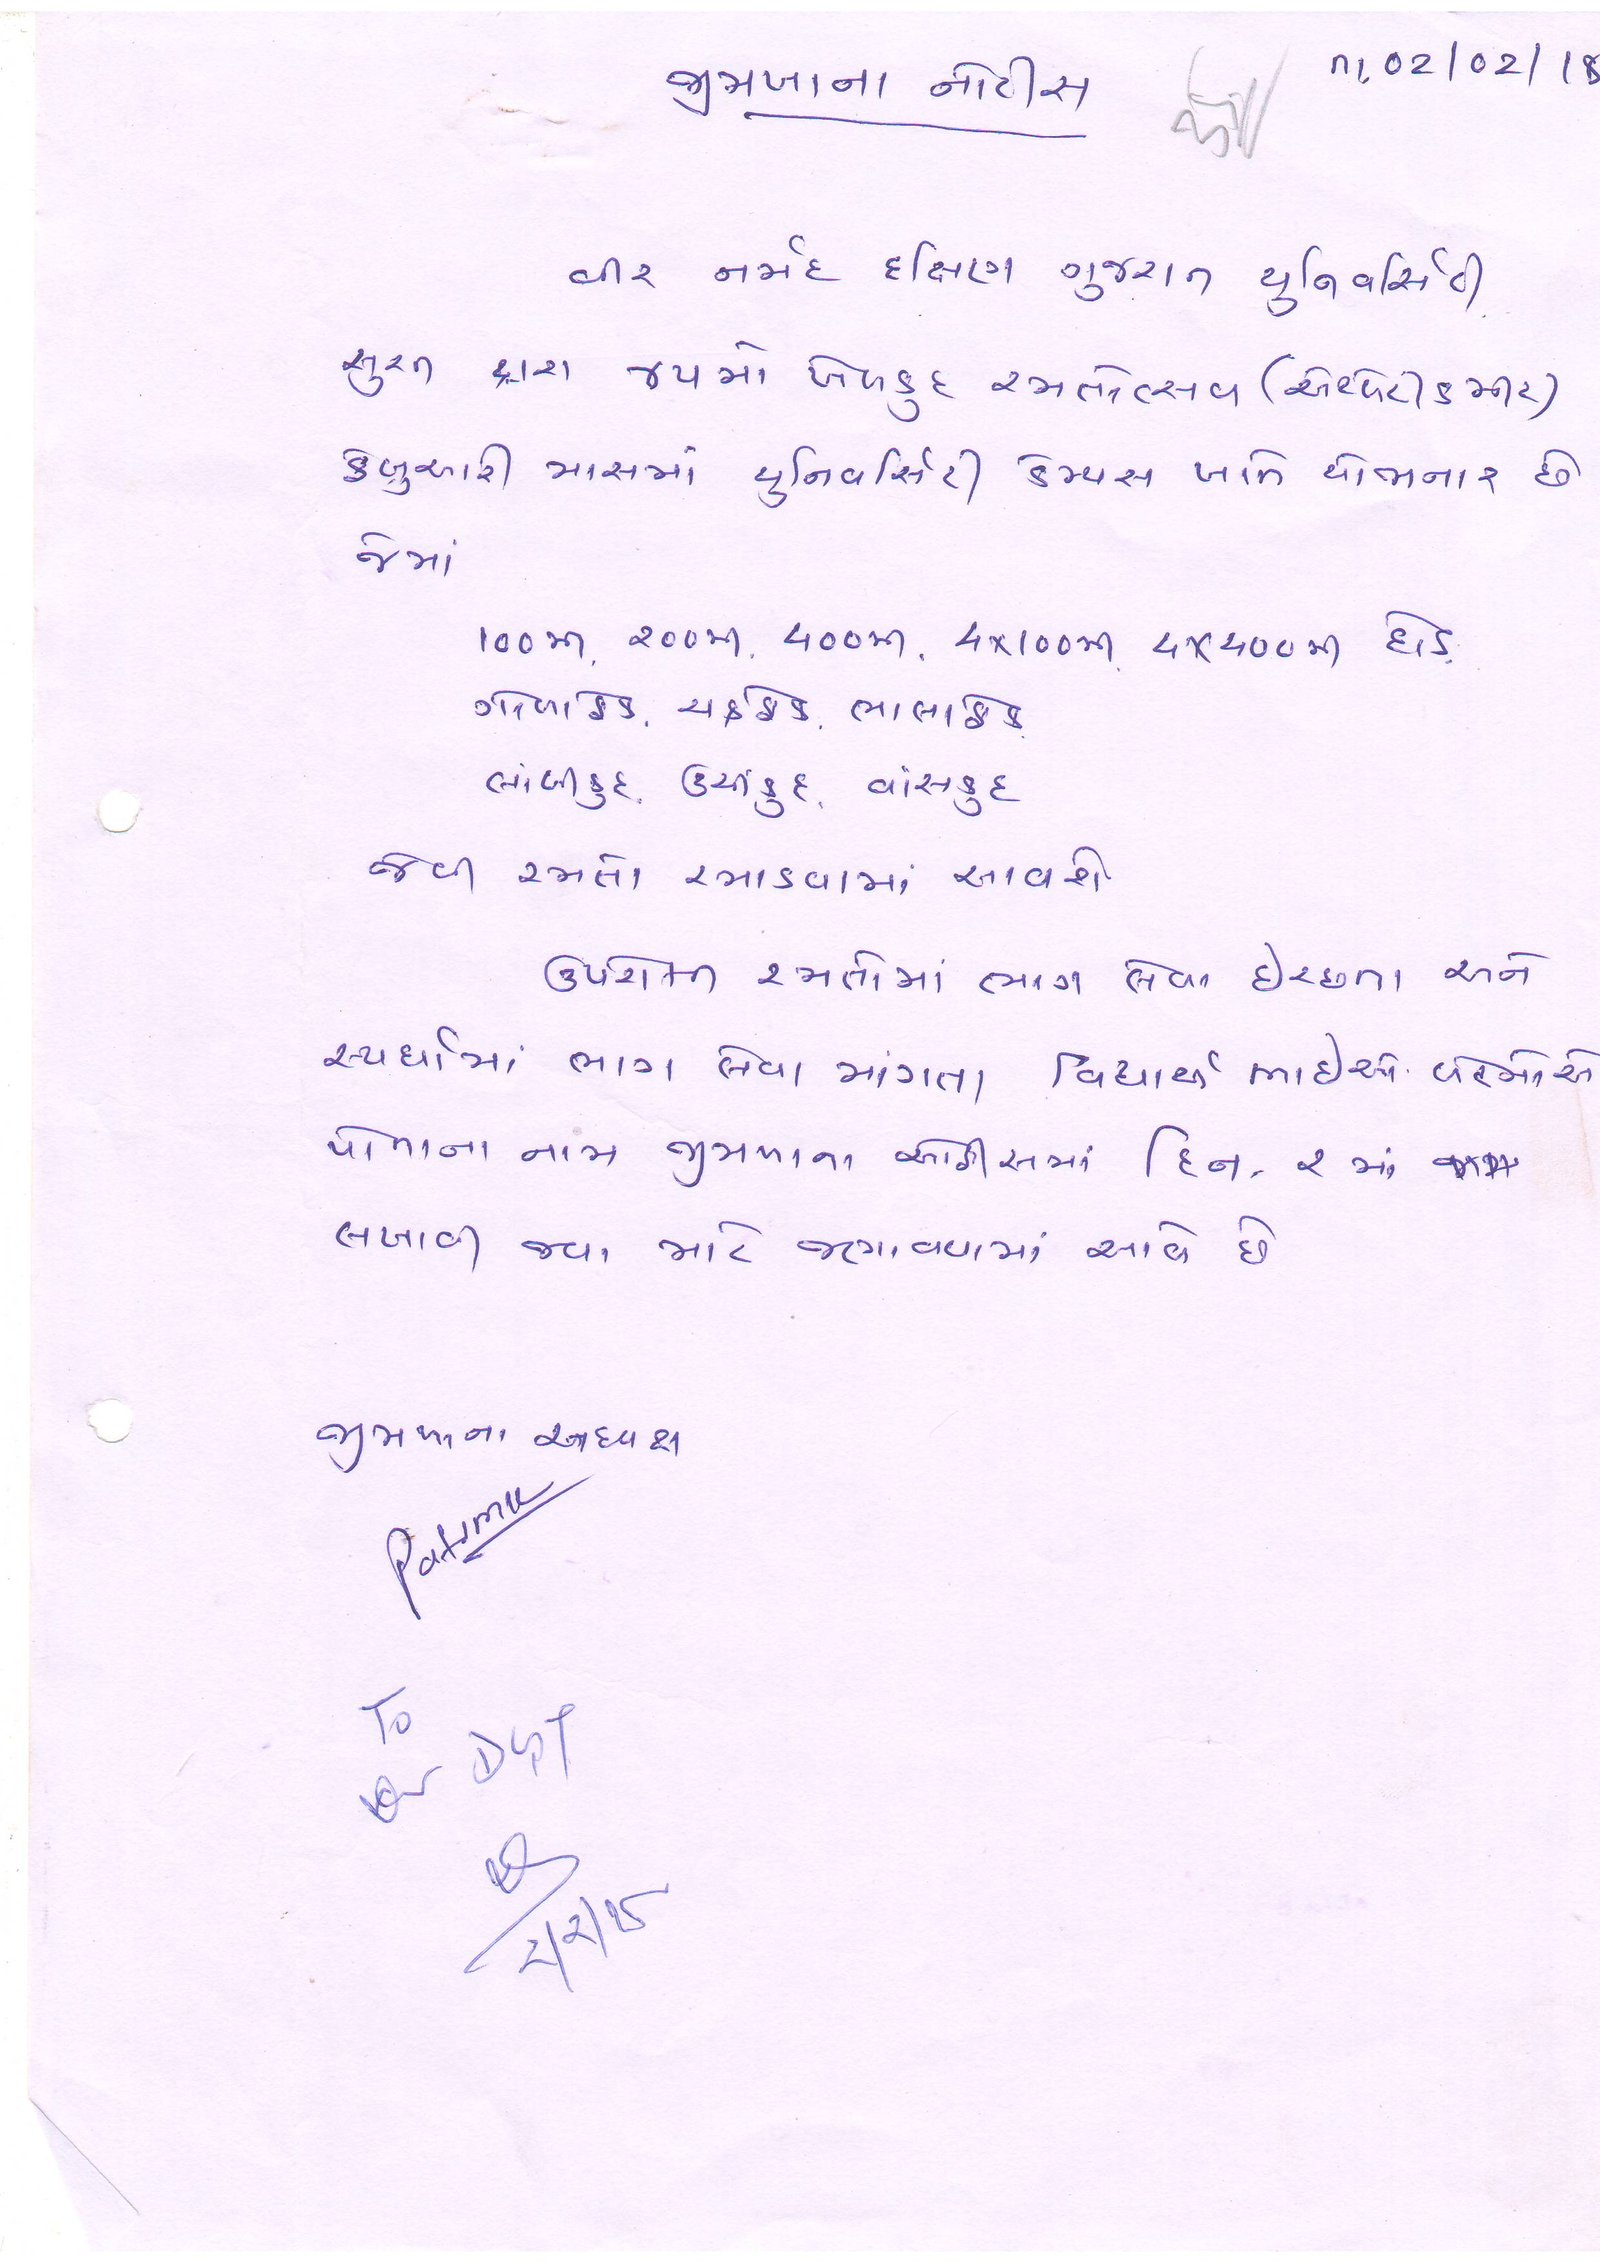 જીમખાના નોટીસ
તા. 02/02/15
વીર નર્મદ દક્ષિણ ગુજરાત યુનિવર્સિટી,
સુરત દ્વારા ૪૫મો ખેલકુદ રમતોત્સવ (એથ્લેટીકમીટ)
ફેબ્રુઆરી માસમાં યુનિવર્સિટી કેમ્પસ ખાતે યોજાનાર છે
જેમાં
100મી, 200મી, 400મી, 4x100મી, 4x400મી દોડ,
ગોળાફેંક, ચક્રફેંક, ભાલાફેંક,
લાંબીકુદ, ઉંચીકુદ, વાંસકુદ
જેવી રમતો રમાડવામાં આવશે
ઉપરોક્ત રમતોમાં ભાગ લેવા ઈચ્છતા અને
સ્પર્ધામાં ભાગ લેવા માંગતા વિદ્યાર્થી ભાઈઓ-બહેનોએ
પોતાના નામ જીમખાના ઓફીસમાં દિન-૨ માં
લખાવી જવા માટે જણાવવામાં આવે છે
જીમખાના અધ્યક્ષ
To
2/2/15